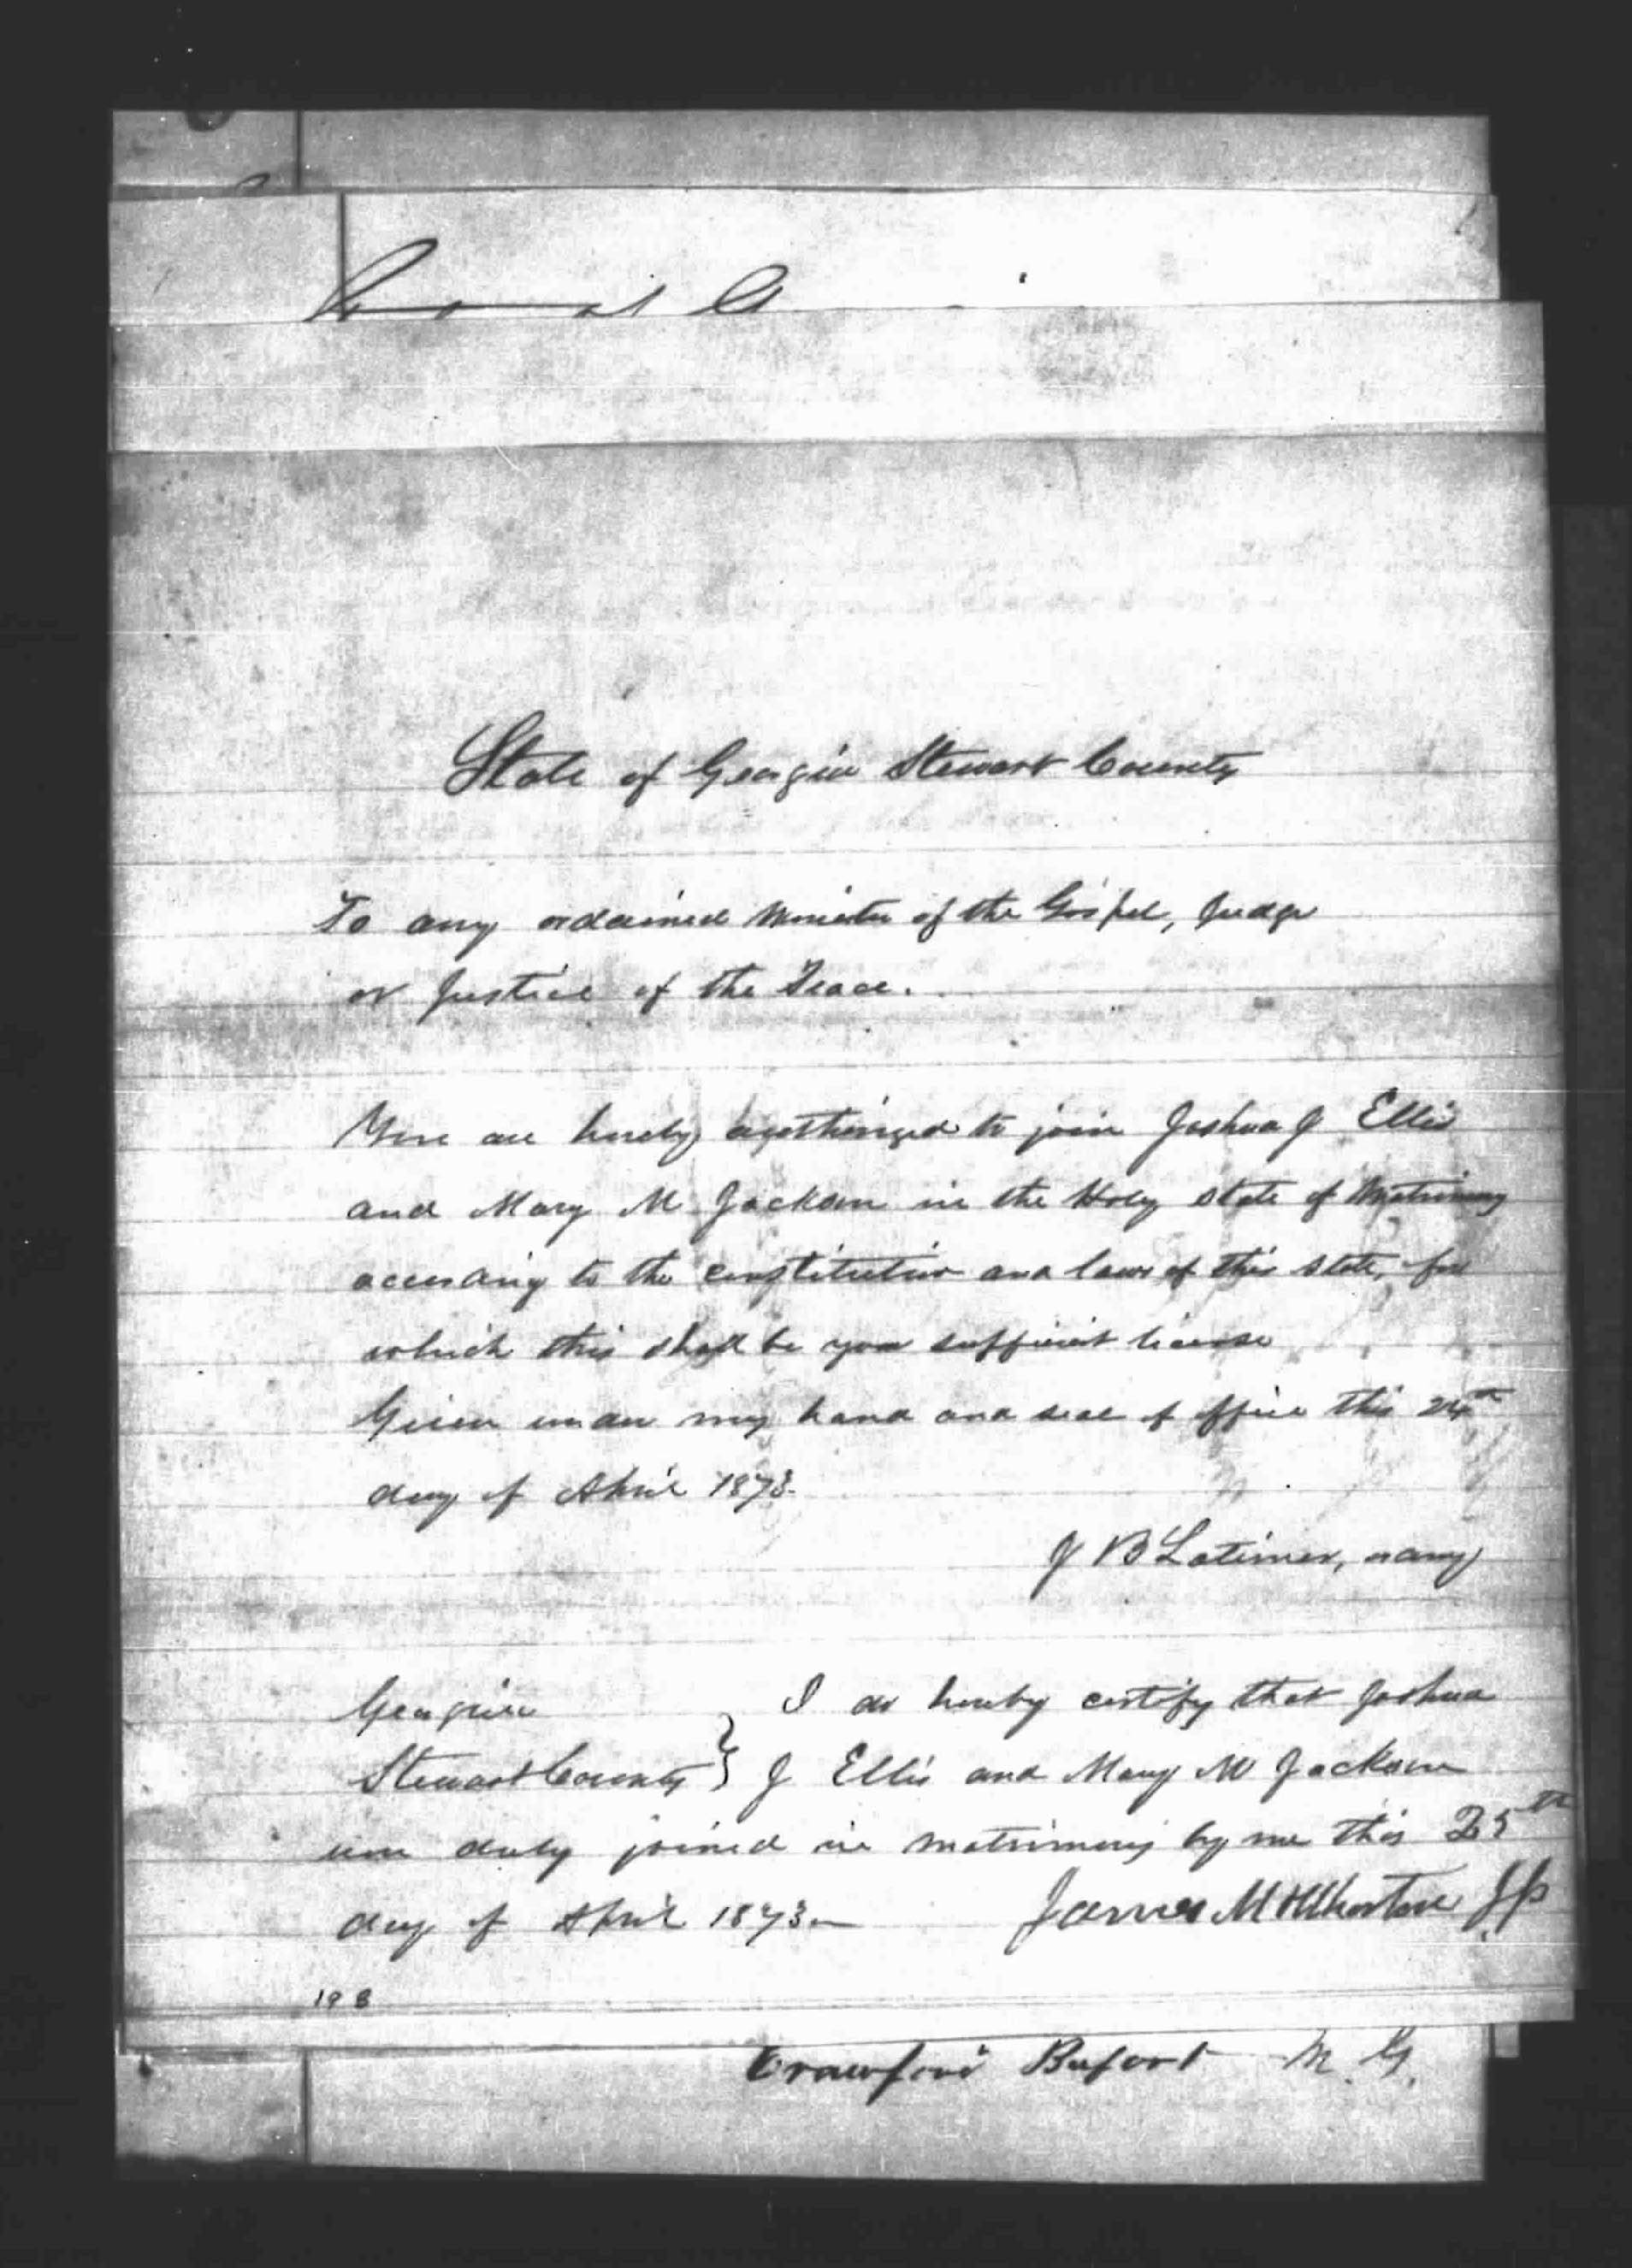 State of Georgia Stewart County
To any ordained Minister of the Gospel, Judge
or Justice of the Peace.
You are hereby authorized to join Joshua J Ellis
and Mary M Jackson in the Holy state of Matrimony
according to the constitution and laws of this state, for
which this shall be your sufficient license
Given under my hand and seal of office this 24th
day of April 1873.
J B Latimer,
Georgia } I do hereby certify that Joshua
Stewart County } J Ellis and Mary M Jackson
were duly joined in matrimony by me this 25th
day of April 1873. James M JP
198
Crawford Buford M. G.